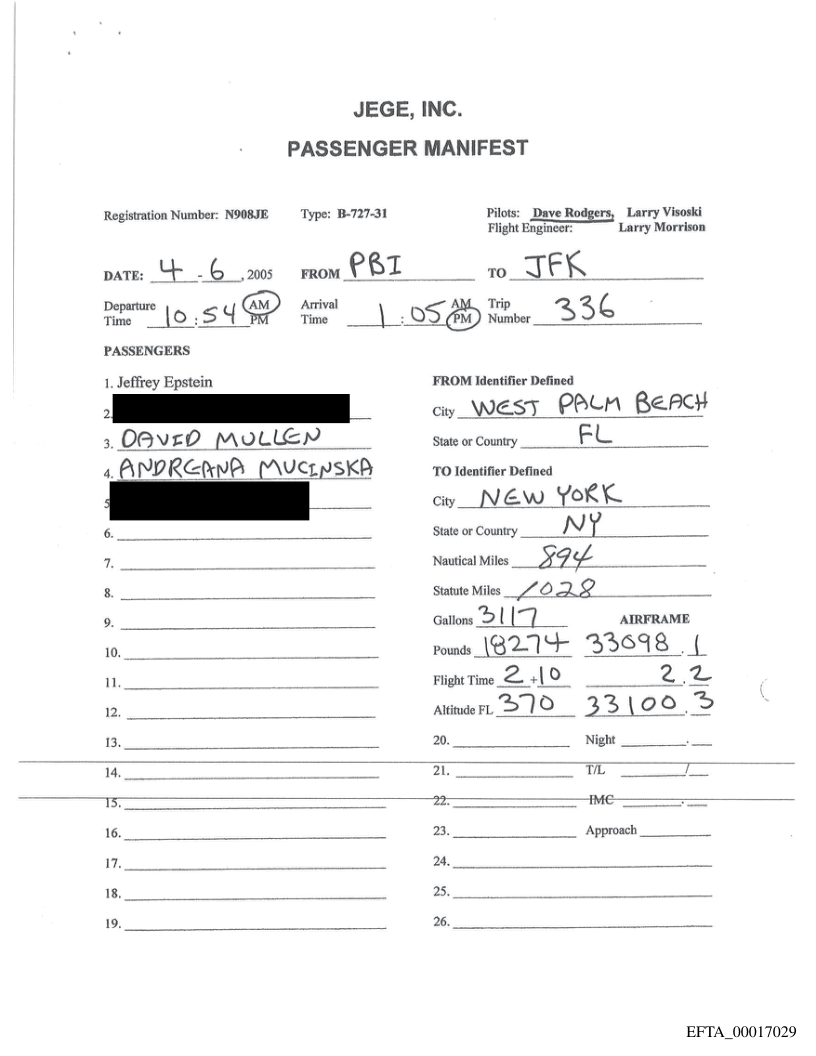 JEGE, INC.
PASSENGER MANIFEST
Registration Number: N908JE Type: B-727-31 Pilots: Dave Rodgers, Larry Visoski
Flight Engineer: Larry Morrison
DATE: 4 - 6, 2005 FROM PBI TO JFK
Departure Time 10:54 AM PM Arrival Time 1:05 AM PM Trip Number 336
PASSENGERS
1. Jeffrey Epstein
2.
3. DAVID MULLEN
4. ANDREANA MUCINSKA
5
6.
7.
8.
9.
10.
11.
12.
13.
14.
15.
16.
17.
18.
19.
FROM Identifier Defined
City WEST PALM BEACH
State or Country FL
TO Identifier Defined
City NEW YORK
State or Country NY
Nautical Miles 894
Statute Miles 1028
Gallons 3117 AIRFRAME
Pounds 18274 33098.1
Flight Time 2+10 2.2
Altitude FL 370 33100.3
20. Night .
21. T/L /
22. IMC .
23. Approach
24.
25.
26.
EFTA_00017029